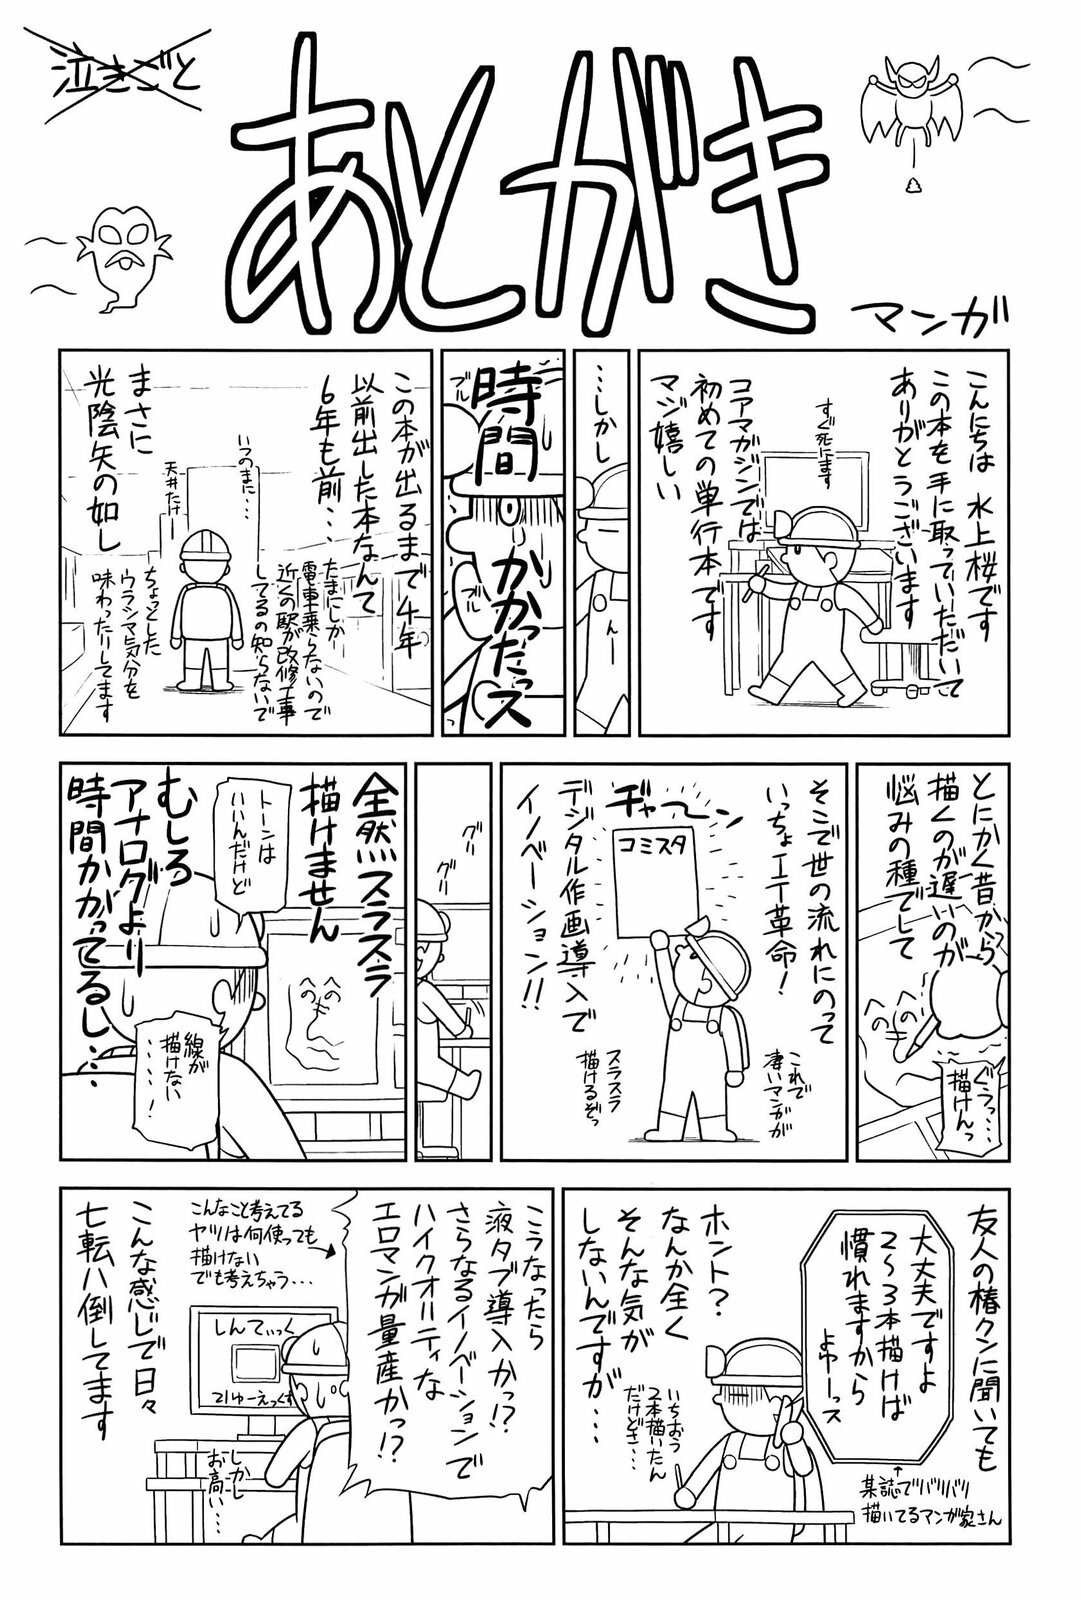 泣きごと
あとがき
マンガ
こんにちは 水上桜です
この本を手に取っていただいて
ありがとうございます
すぐ死にます
コアマガジンでは
初めての単行本です
マジ嬉しい
…しかし
んー
時間
かかったっス
ブル
ブル
この本が出るまで4年
以前出した本なんて
6年も前…
たまにしか
電車乗らないので
近くの駅が改修工事
してるの知らないで
いつのまに…
天井たけー
ちょっとした
ウラシマ気分を
味わったりしてます
まさに
光陰矢の如し
とにかく昔から
描くのが遅いのが
悩みの種でして
ぐぅっ…
描けんっ
そこで世の流れにのって
いっちょIT革命!
ヂャーン
コミスタ
デジタル作画導入で
イノベーション!!
これで
凄いマンガが
スラスラ
描けるぞっ
グリ
グリ
全然スラスラ
描けません
トーンは
いいんだけど
むしろ
アナログより
時間かかってるし…
線が
描けない
……!
友人の椿クンに聞いても
大丈夫ですよ
2〜3本描けば
慣れますから
よゆーっス
↑
某誌でバリバリ
描いてるマンガ家さん
ホント?
なんか全く
そんな気が
しないんですが…
いちおう
2本描いたん
だけどさ…
こうなったら
液タブ導入かっ!?
さらなるイノベーションで
ハイクオリティな
エロマンガ量産かっ!?
こんなこと考えてる
ヤツは何使っても
描けない
でも考えちゃう…
しんてぃっく
21ゆーえっくす
しかし
お高い…
こんな感じで日々
七転八倒してます